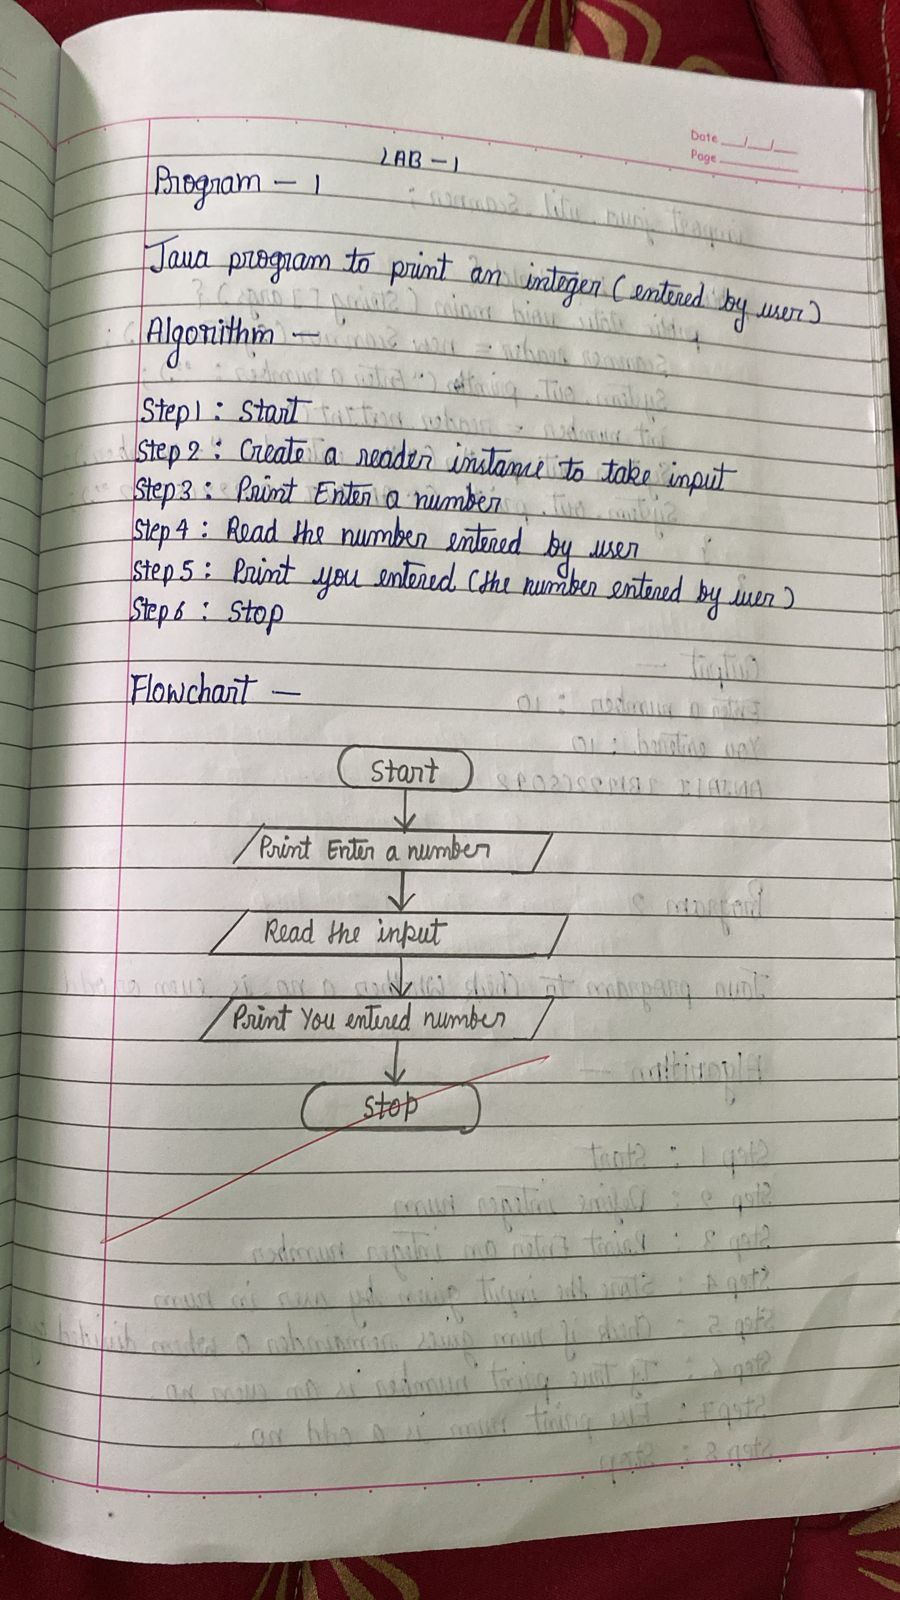 Date __/__/__
Page ______
LAB - 1
Program - 1
Java program to print an integer (entered by user)
Algorithm -
Step 1 : Start
Step 2 : Create a reader instance to take input
Step 3 : Print Enter a number
Step 4 : Read the number entered by user
Step 5 : Print you entered (the number entered by user)
Step 6 : Stop
Flowchart -
Start
Print Enter a number
Read the input
Print You entered number
Stop